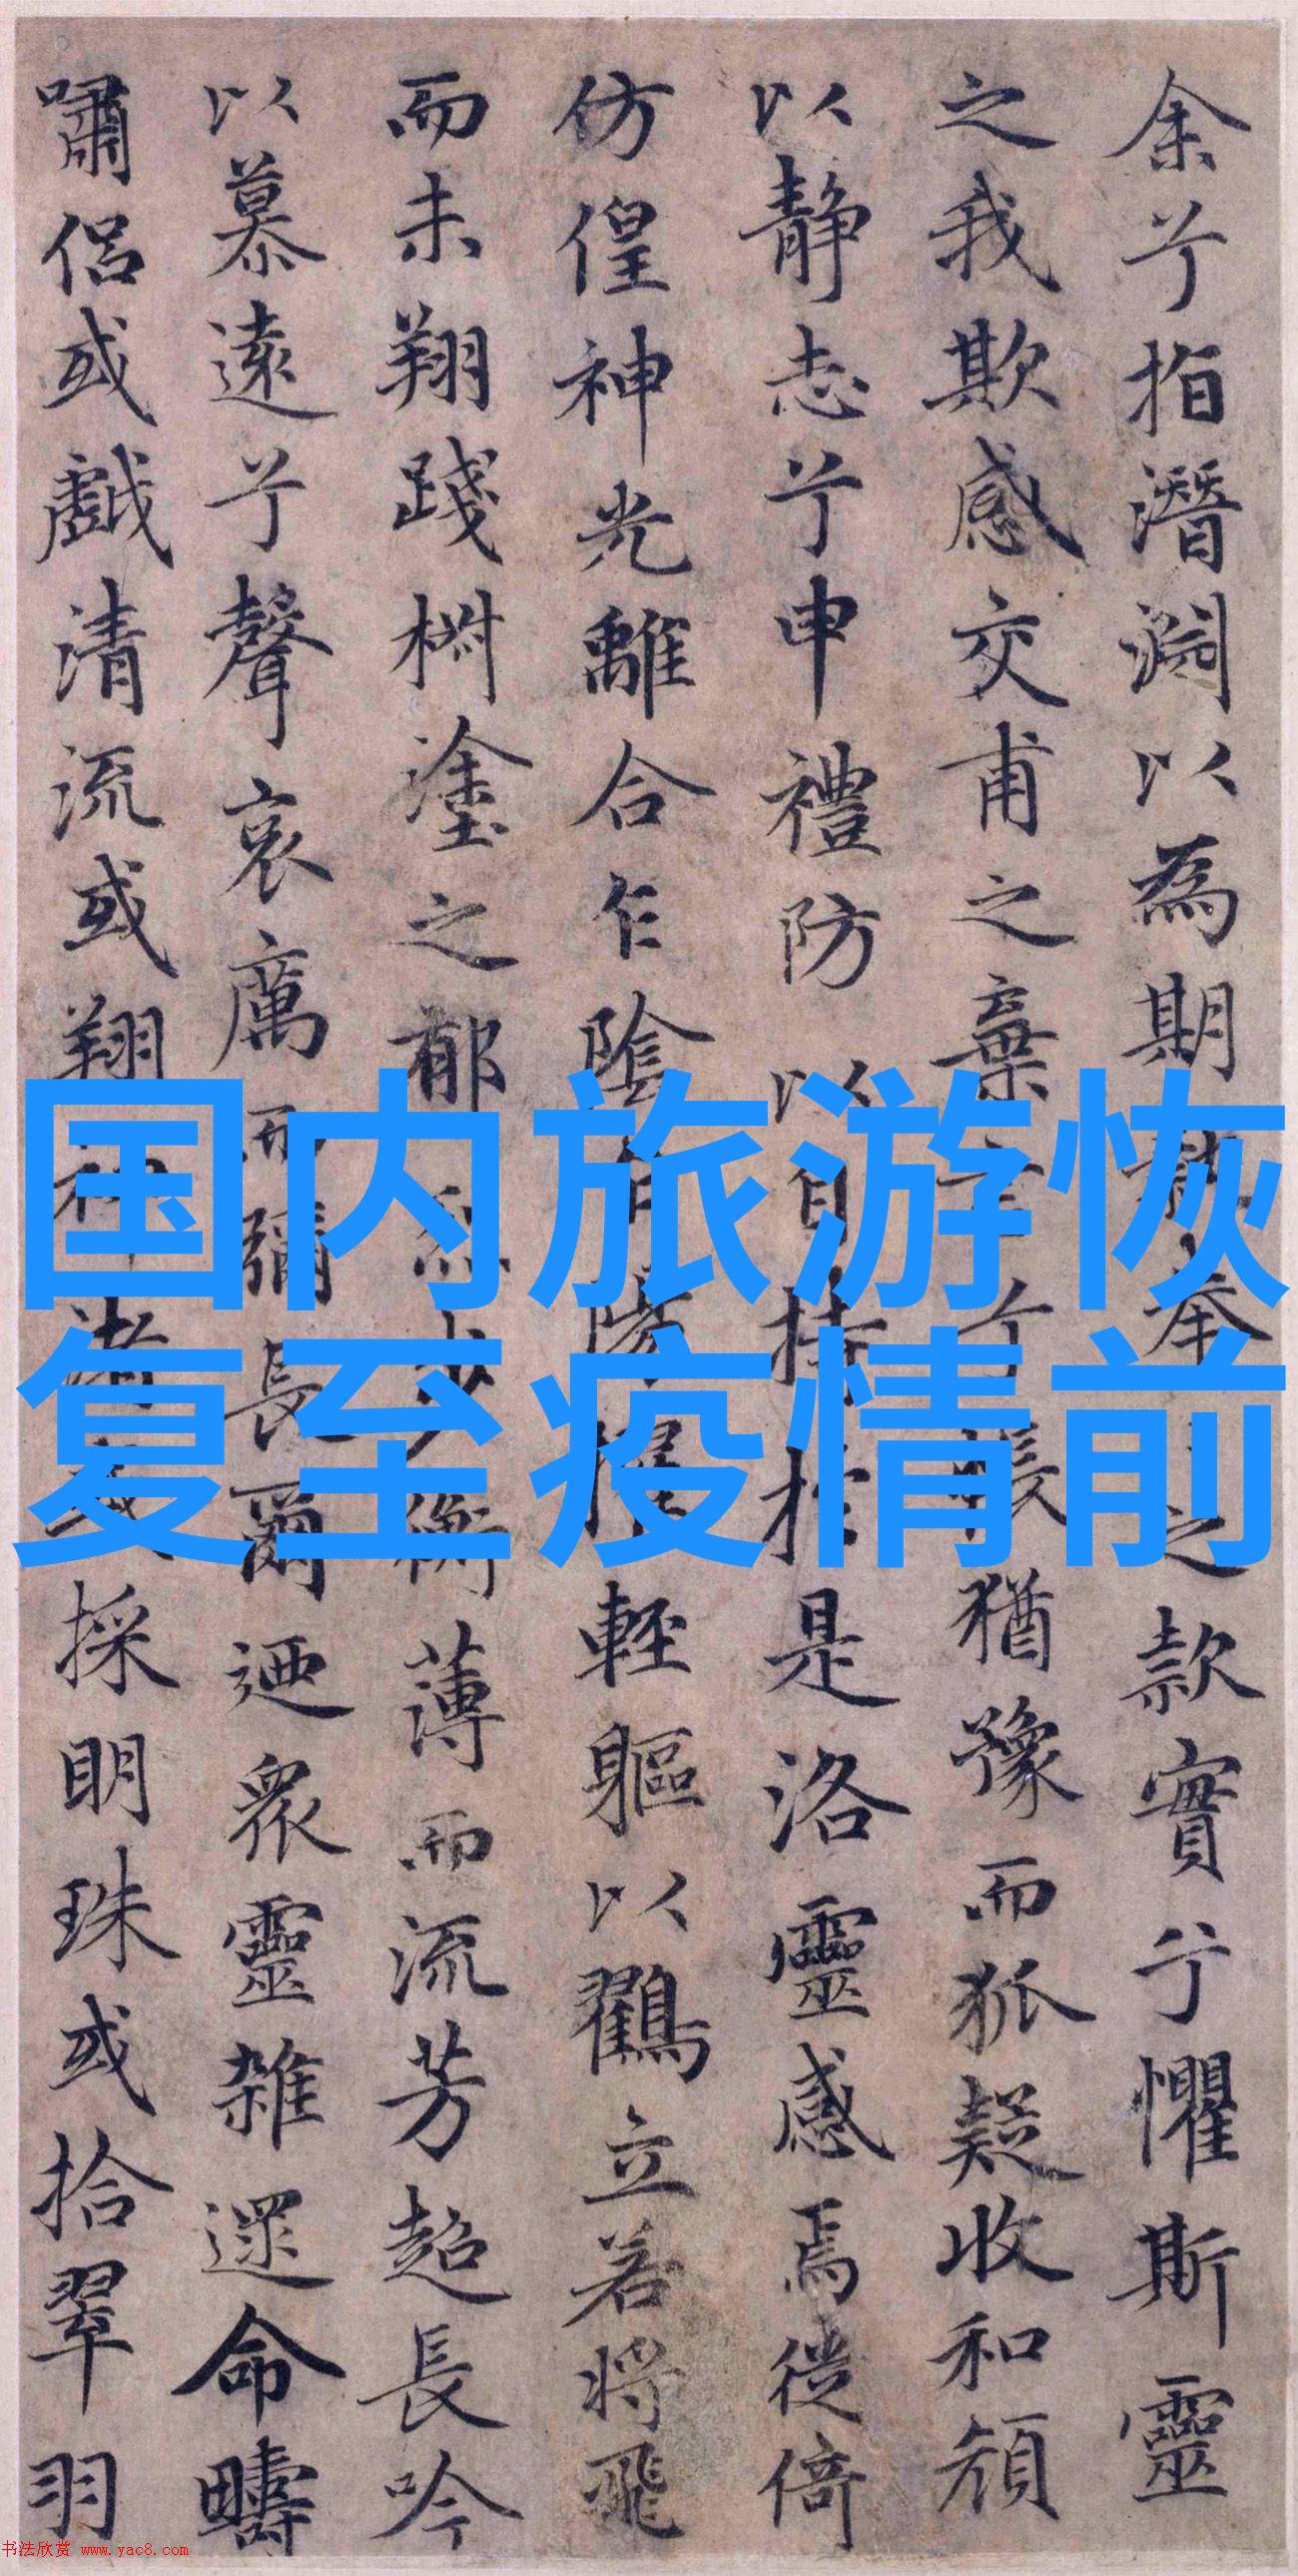 余兮指潛淵以為期執拳之款實兮懼斯靈
之我欺感交甫之棄言兮悵猶豫而狐疑收和顏
以静志兮申禮防以自持於是洛靈感焉徙倚
仿偟神光離合乍陰乍陽擢輕軀以鸖立若將飛
而未翔踐椒塗之郁烈步衡薄而流芳超長吟
以慕遠兮聲哀厲而彌長爾迺衆靈雜遝命疇
嘯侣或戲清流或翔神渚或採明珠或拾翠羽
国内旅游恢
复至疫情前
书法欣赏 www.yac8.com